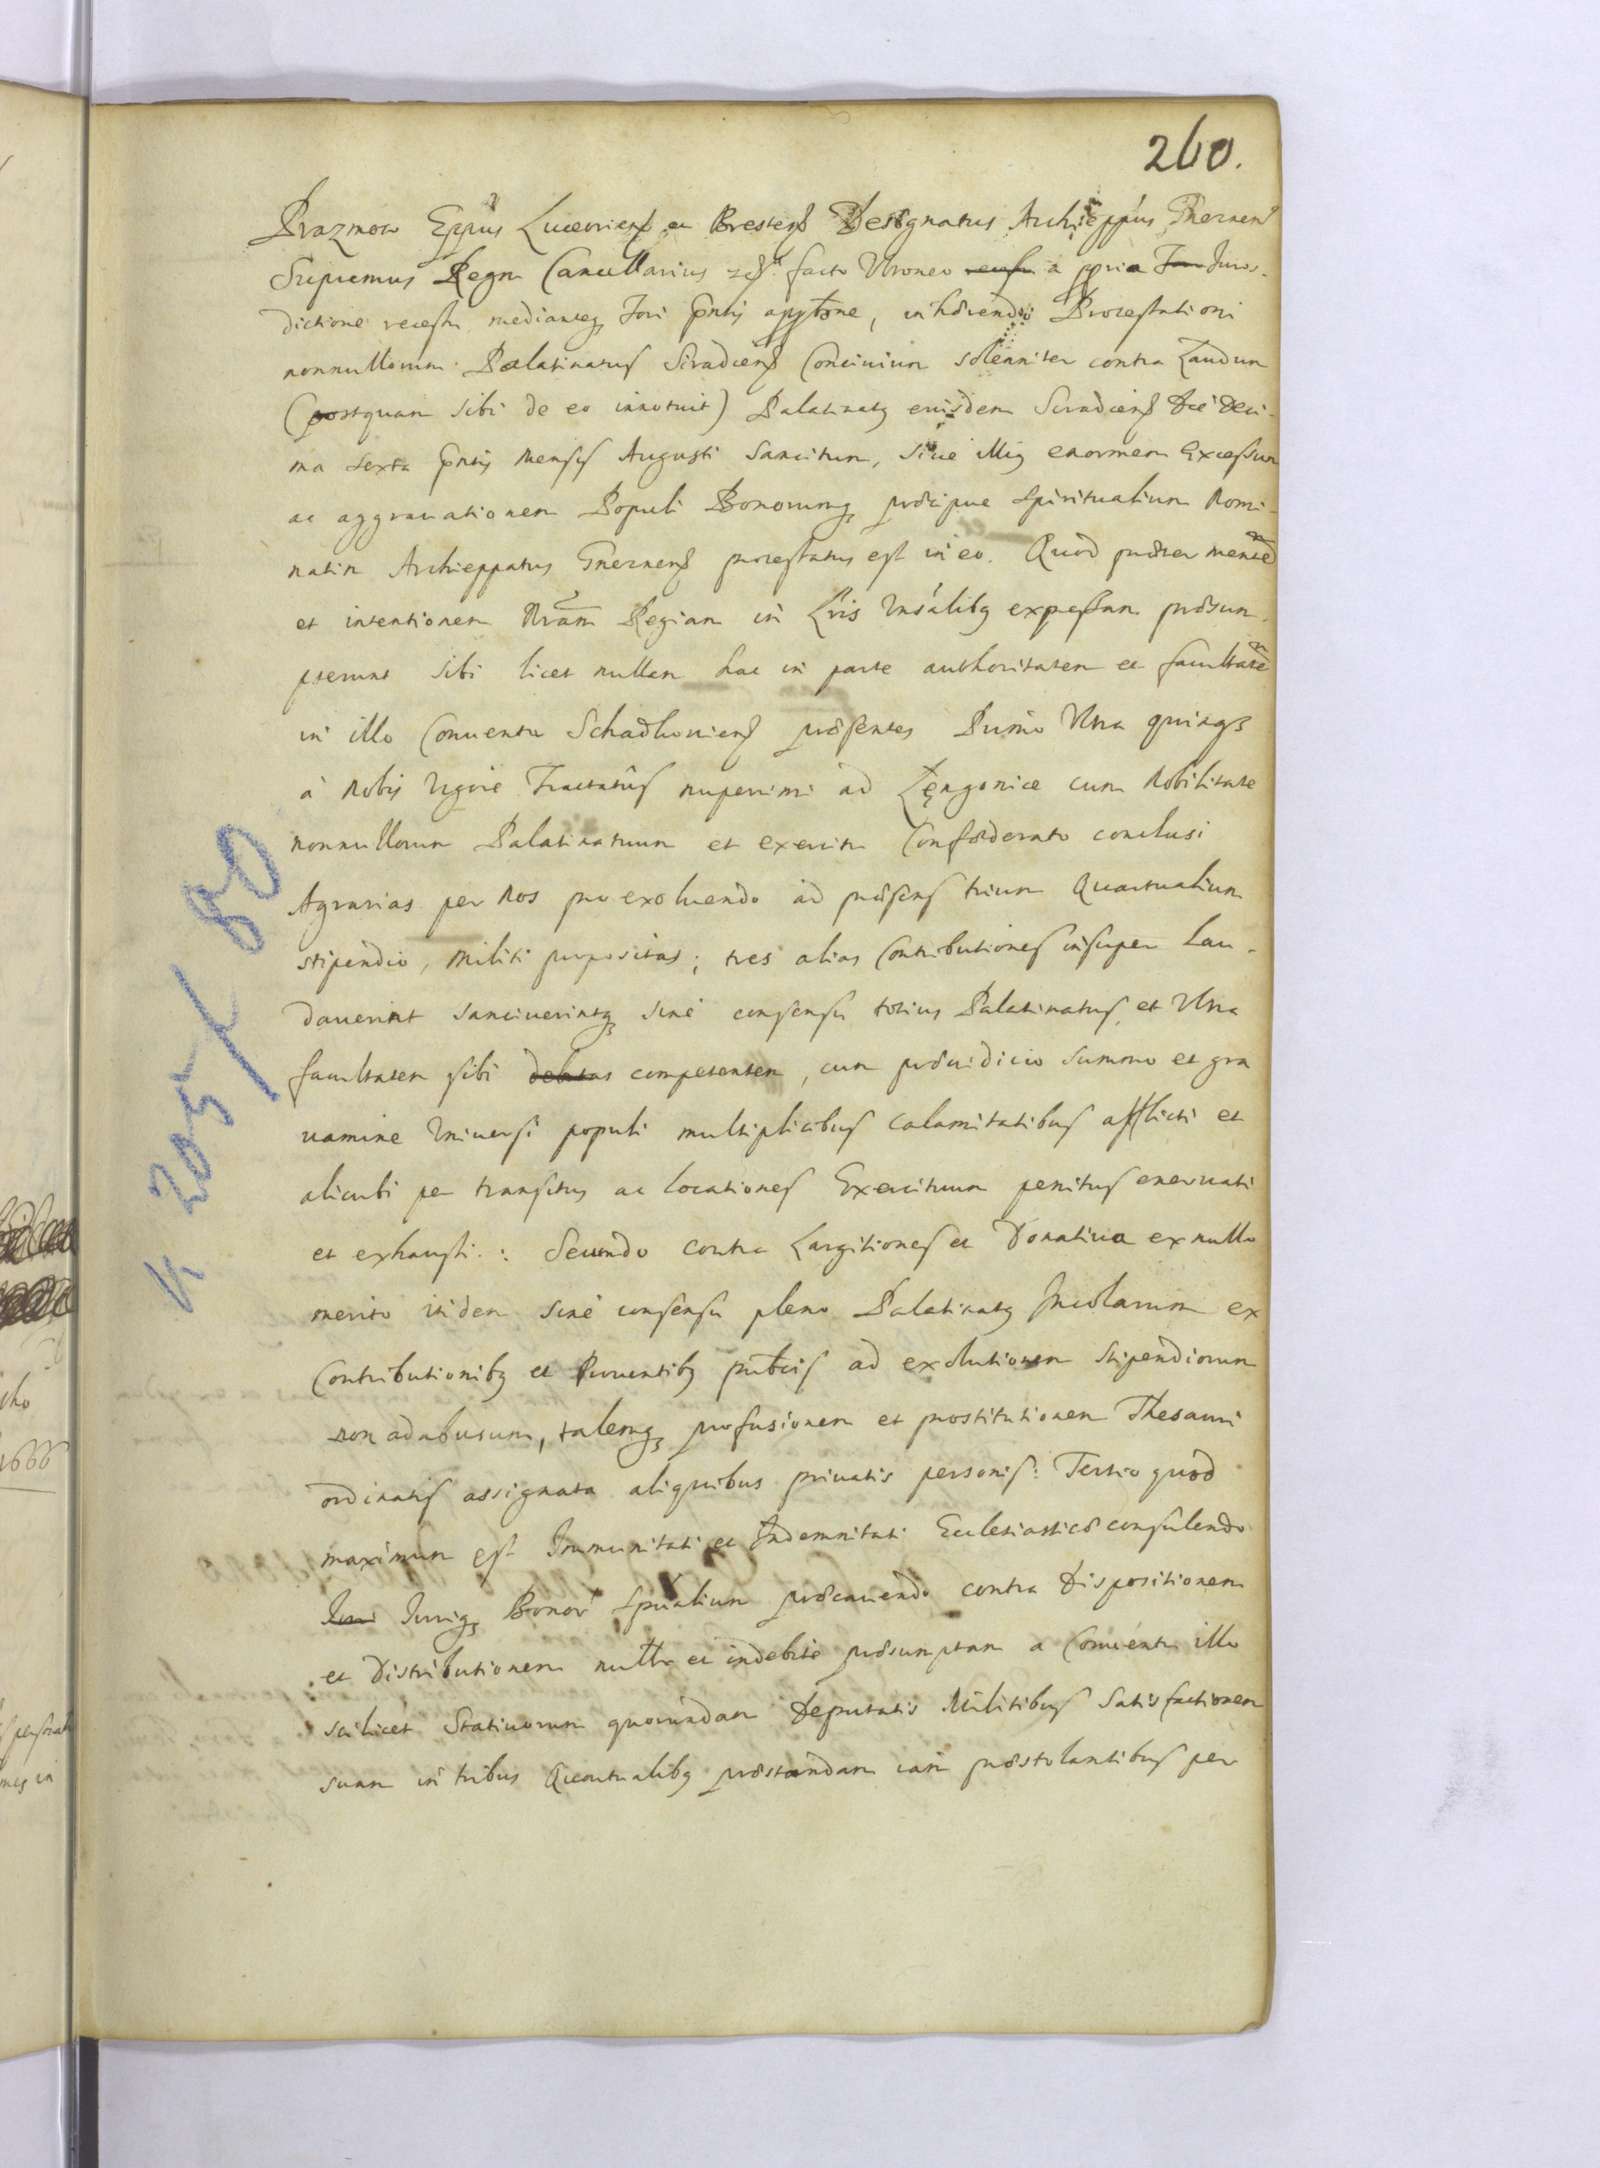 260.
Prazmow Eppus Luceoriens et Brestens Designatus Archieppus Gnesnen
Supremus Regni Cancellarius facto Ultroneo a ppria Juris-
dictione recessu medianteq Fori pntis apptone, inhærendo Protestationi
nonnullorum Palatinatus Siradiens Conciuium solenniter contra Laudum
(postquam sibi de eo innotuit) Palatinatq eiusdem Siradiens Die Deci-
ma sexta pntis Mensis Augusti sancitum, siue illiq enormem Excessum
ac aggrauationem Populi Bonorumq præcipue Spiritualium Nomi-
natim Archieppatus Gnesnens protestatus est in eo. Quod præter mentem
et intentionem Nram Regiam in Lris Vnsalibq expressam præsum-
pserint sibi licet nullam hac in parte authoritatem et facultatem
in illo Conuentu Schadkouiens præsentes Primo Vltra quinqȝ
à Nobis vigore Tractatus nuperrimi ad Lęgonice cum Nobilitate
nonnullorum Palatinatuum et exercitu Confœderato conclusi
Agrarias per Nos pro exoluendo ad præsens trium Quartualium
stipendio, Militi propositas; tres alias Contributiones insuper lau-
dauerint sanciuerintq sine consensu totius Palatinatus et Vltra
facultatem sibi competentem, cum præiudicio summo et gra
uamine Vniuersi populi multiplicibus calamitatibus afflicti et
alicubi per transitus ac locationes Exercituum penitus eneruati
et exhausti: Secundo contra Largitiones et Donatiua ex nullo
merito itidem sine consensu pleno Palatinatq Incolarum ex
Contributionibq et Prouentibq publcis ad exolutionem Stipendiorum
non ad abusum, talemq profusionem et prostitutionem Thesauri
ordinatis assignata aliquibus priuatis personis: Tertio quod
maximum est Immunitati et Indemnitati Ecclesiasticæ consulendo
Juri Juriq Bonor Spualium præcauendo contra Dispositionem
et Distributionem et indebite præsumptam a Conuentu illo
scilicet Statiuorum quorundam Deputatis Militibus satisfactionem
suam in tribus Quartualibq præstandam iam præstolantibus per
K 205/80
1666